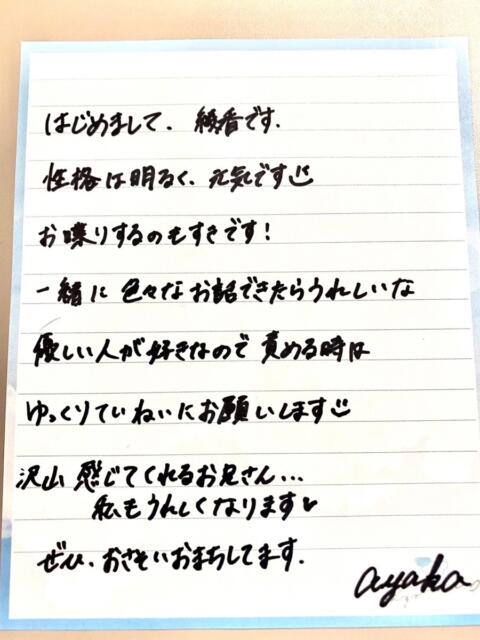 はじめまして. 綾香です.
性格は明るく、元気です
お喋りするのもすきです!
一緒に色々なお話できたらうれしいな
優しい人が好きなので責める時は
ゆっくりていねいにお願いします
沢山感じてくれるお兄さん...
私もうれしくなります♥
ぜひ、おさそいおまちしてます.
ayaka